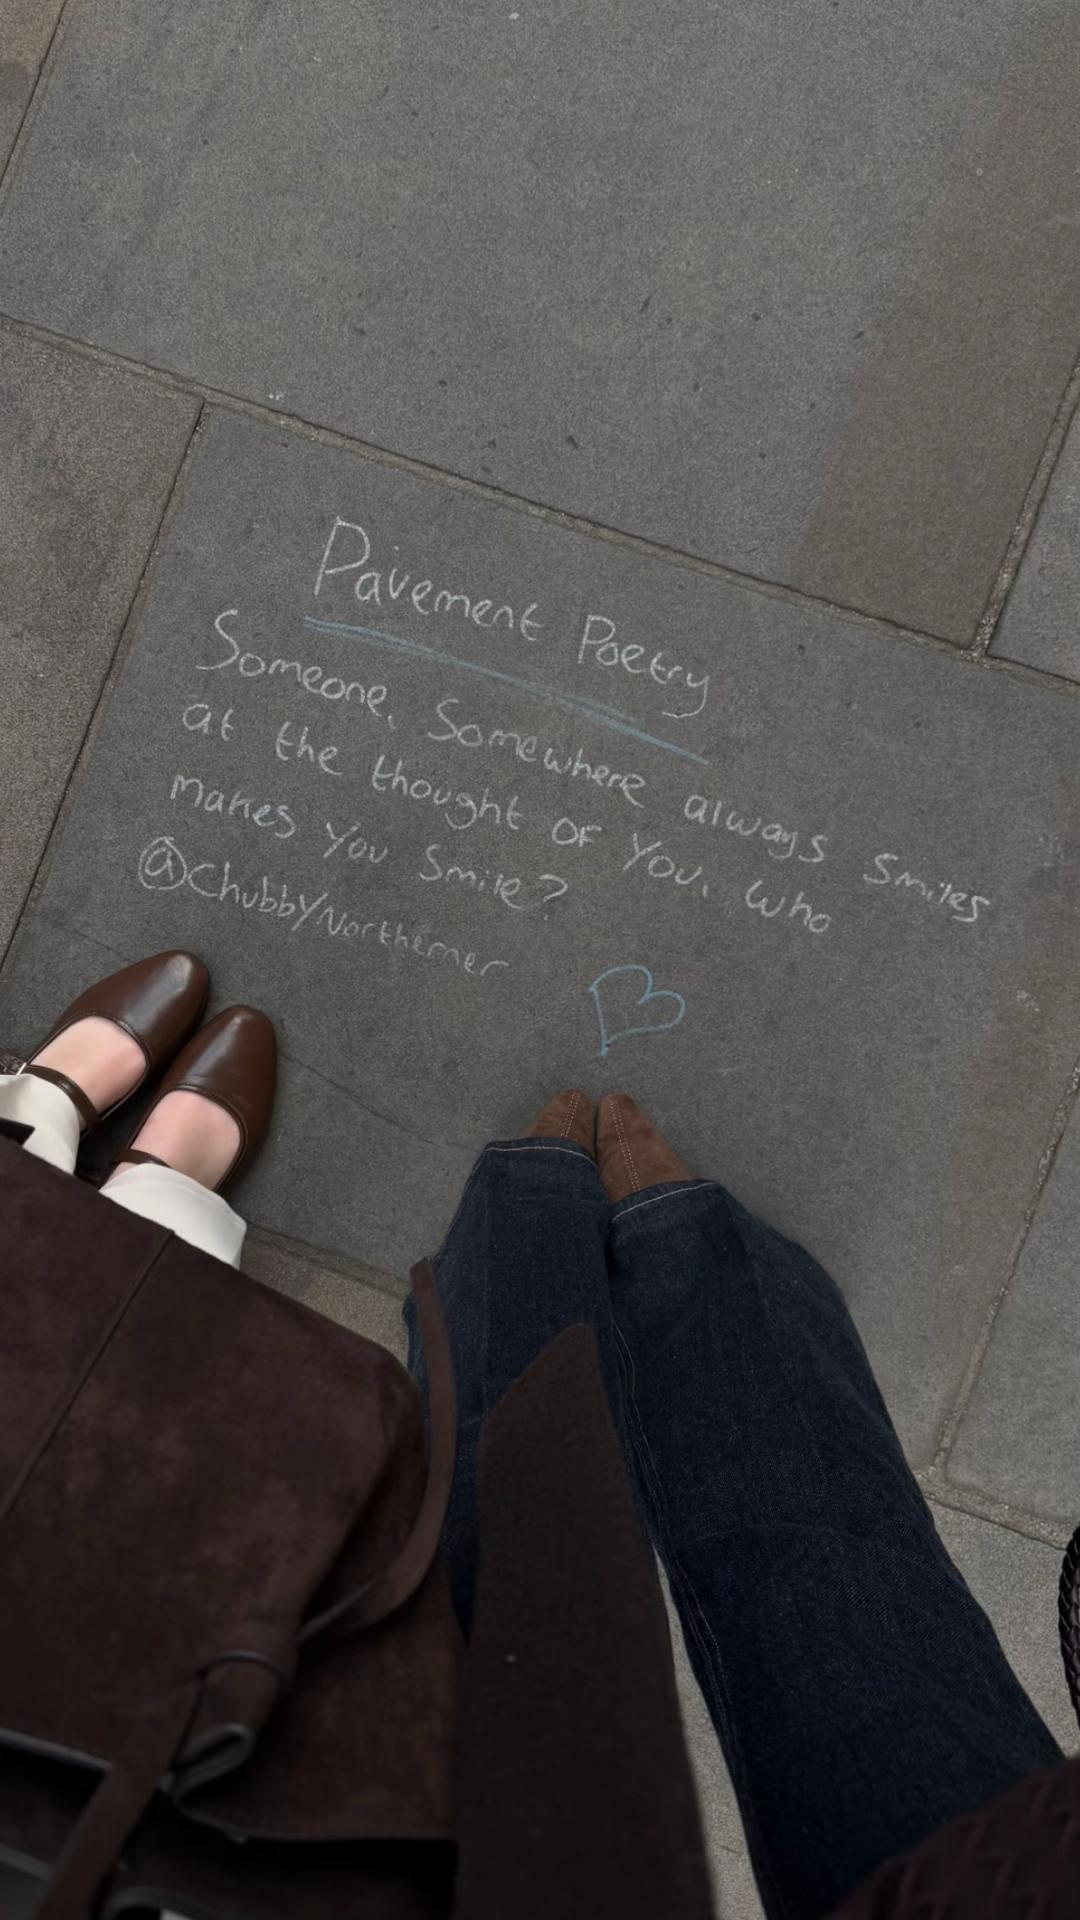 Pavement Poetry
Someone, Somewhere always Smiles
at the thought of You. Who
makes You Smile?
@ChubbyNortherner